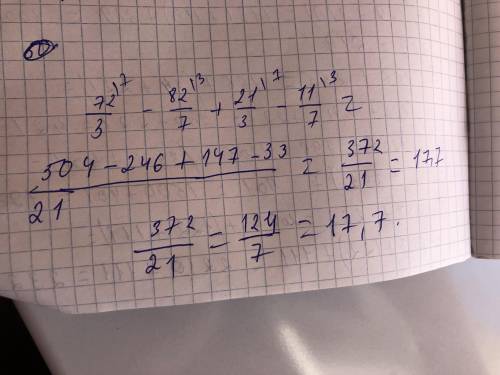 72\7/3 - 82\3/7 + 21\7/3 - 11\3/7 =
504 - 246 + 147 - 33/21 = 372/21 = 17,7
372/21 = 124/7 = 17,7.